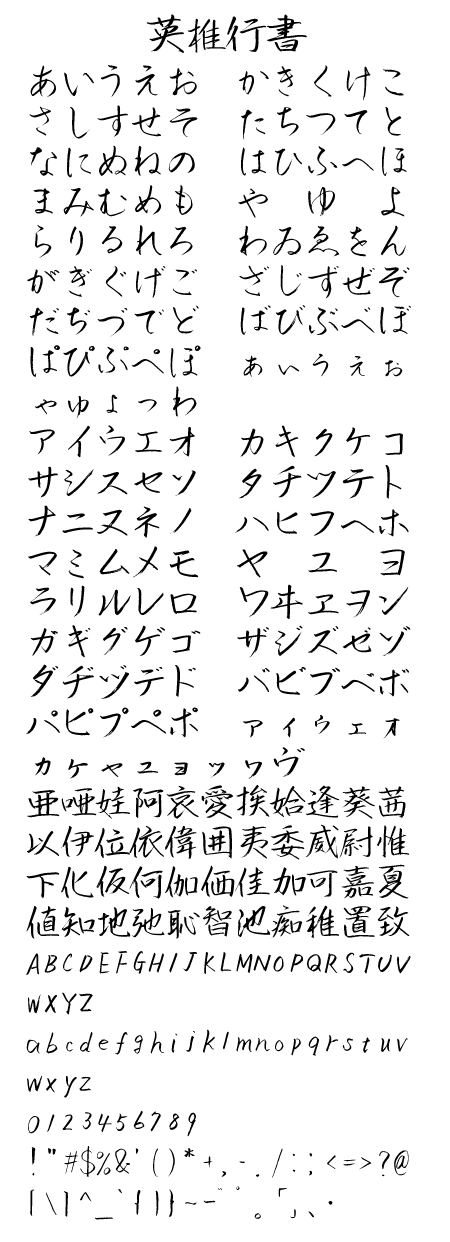 英椎行書
あいうえお かきくけこ
さしすせそ たちつてと
なにぬねの はひふへほ
まみむめも や ゆ よ
らりるれろ わゐゑをん
がぎぐげご ざじずぜぞ
だぢづでど ばびぶべぼ
ぱぴぷぺぽ ぁぃぅぇぉ
ゃゅょっゎ
アイウエオ カキクケコ
サシスセソ タチツテト
ナニヌネノ ハヒフヘホ
マミムメモ ヤ ユ ヨ
ラリルレロ ワヰヱヲン
ガギグゲゴ ザジズゼゾ
ダヂヅデド バビブベボ
パピプペポ ァィゥェォ
ヵヶャュョッヮヴ
亜唖娃阿哀愛挨姶逢葵茜
以伊位依偉囲夷委威尉惟
下化仮何伽価佳加可嘉夏
値知地弛恥智池痴稚置致
ABCDEFGHIJKLMNOPQRSTUV
WXYZ
abcdefghijklmnopqrstuv
wxyz
0123456789
!"#$%&'()*+,-./:;<=>?@
[\]^_`{|}~‾゛゜。「」、・